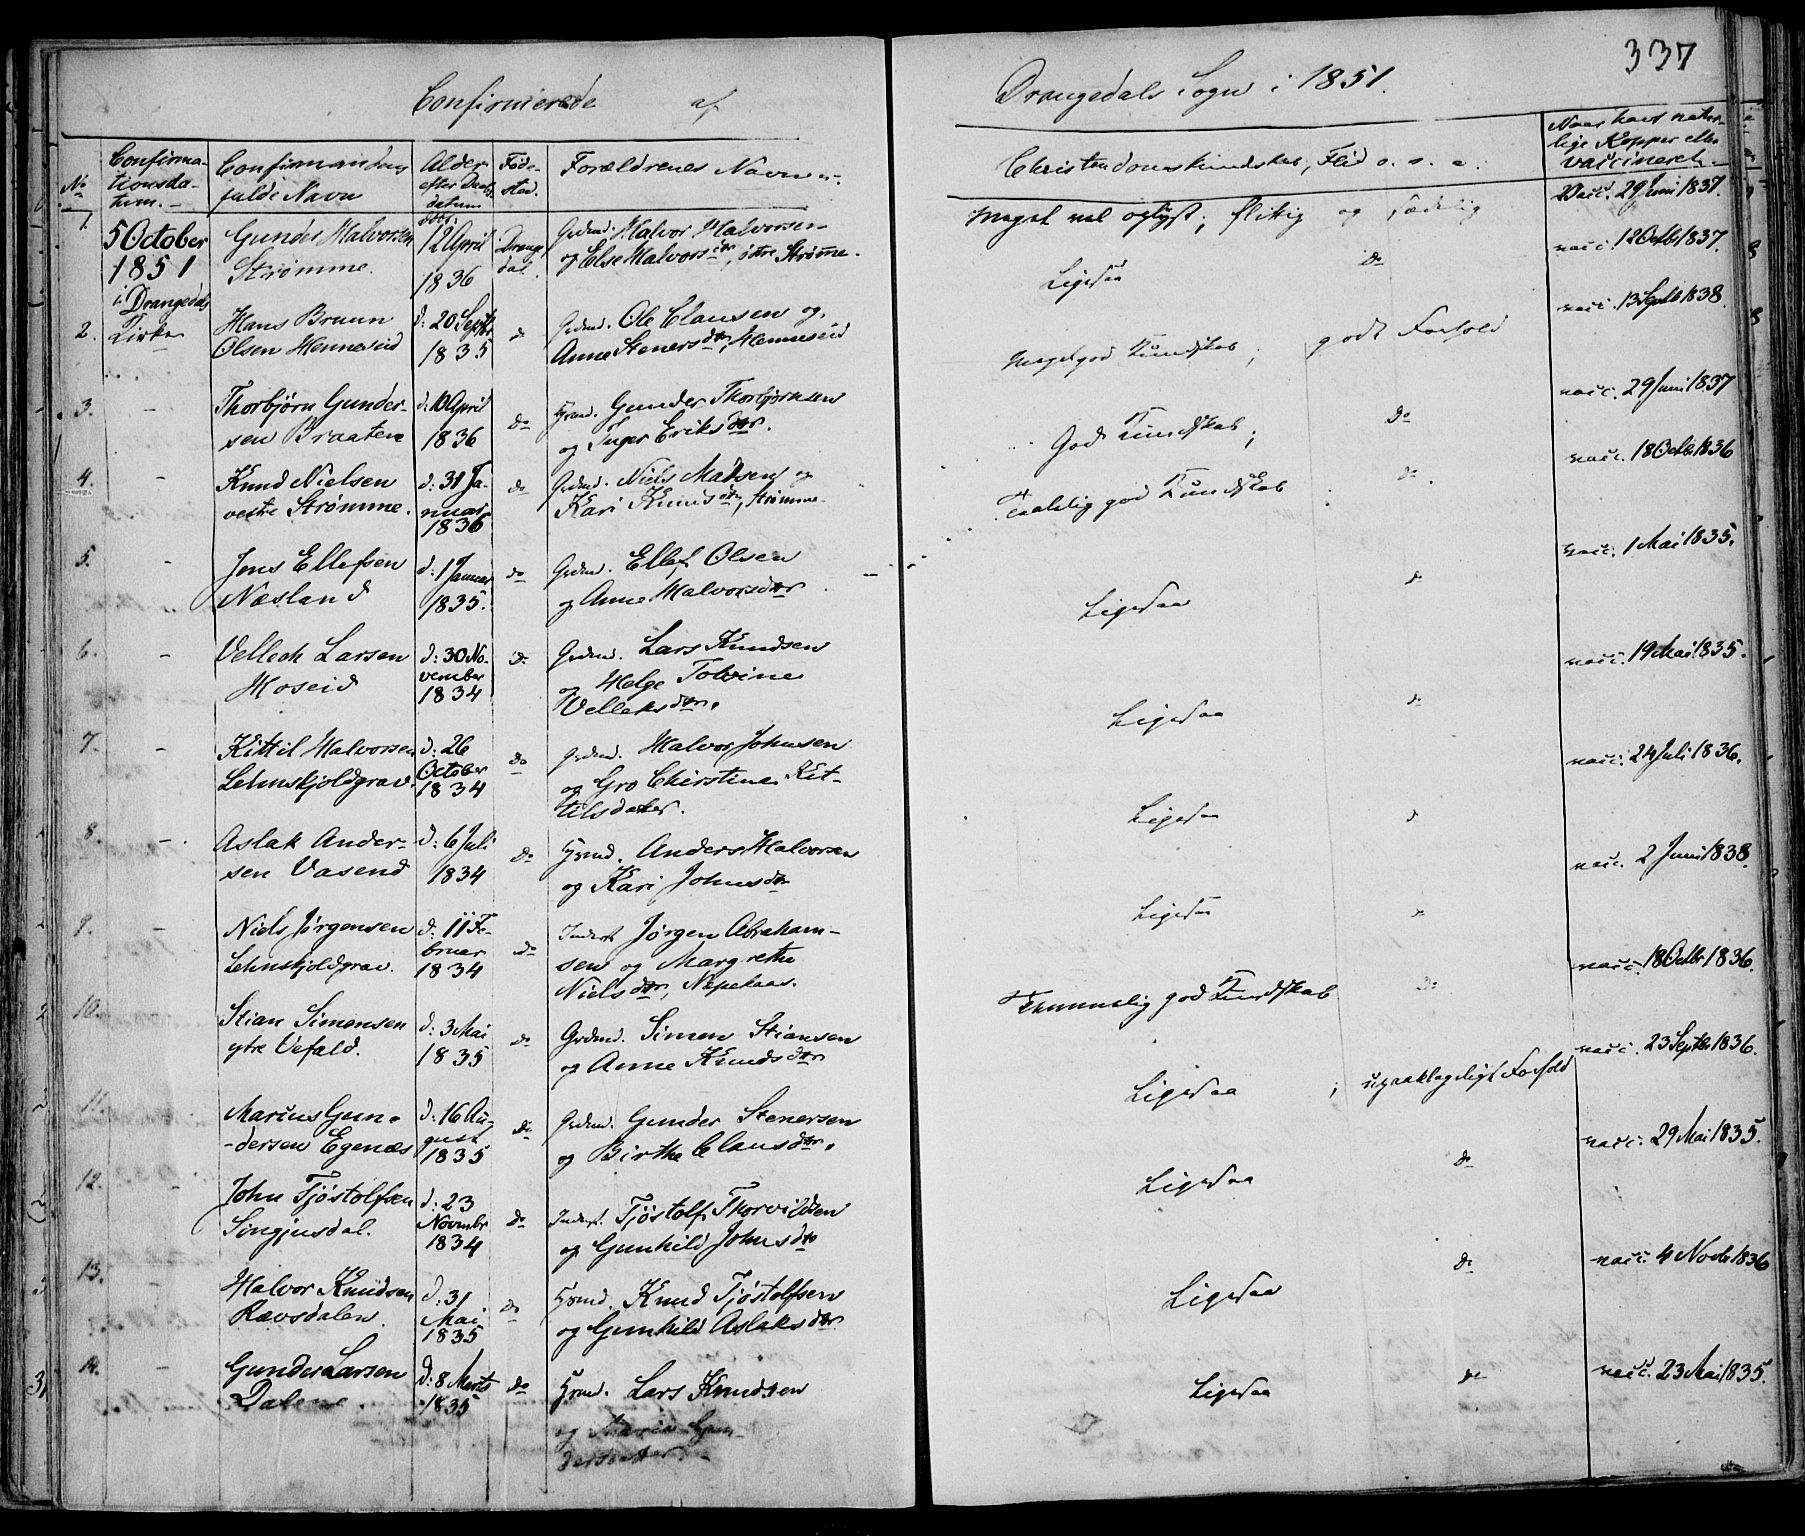 337
Confirmerede af Drangedals Sogn i 1851.
No
Confirma-
tionsda-
tum.
Confirmandens
fulde Navn
Alder
efter Daabs
datum
Føde-
sted.
Forældrenes Navne.
Christendomskundskab, Flid o. s. v.
Naar havt natur-
lige Kopper eller
vaccineret
1.
5 October
1851
i Drangedals
Kirke
Gunder Halvorsen
Strømme.
døbt:
12 April
1836
Drange
dal.
Grdmd. Halvor Halvorsen
og Else Halvorsdtr, østre Strømme.
Meget vel oplyst; flittig og sædelig
Vacc. 29 Juni 1837.
2.
Hans Bruun
Olsen Henneseid
d: 20 Septbr
1835
do
Grdmd. Ole Clausen og
Anne Stenersdtr, Henneseid
Ligesaa do
vacc. 12 Octb 1837.
3. -
Thorbjørn Gunder-
sen Braaten
d: 10 April
1836
do
Hsmd. Gunder Thorbjørnsen
og Inger Eriksdtr.
Meget god Kundskab; godt Forhold
vacc. 13 Septb 1838.
4. -
Knud Nielsen
vestre Strømme.
d: 31 Ja-
nuar
1836
do
Grdmd. Niels Madsen og
Kari Knudsdtr, Strømme
God Kundskab; do
vacc. 29 Juni 1837
5. -
Jens Ellefsen
Næsland
d: 1 Januar
1835.
do
Grdmd. Ellef Olsen
og Anne Halvorsdtr
Taalelig god Kundskab; do
vacc. 18 Octb 1836
6. -
Vellech Larsen
Hoseid
d: 30 No-
vember
1834
do
Grdmd. Lars Knudsen
og Helge Tolvine
Velleksdtr.
Ligesaa do
vacc. 1 Mai 1835.
7. -
Kittil Halvorsen
Lehnskjoldgrav.
d: 26
October
1834
do
Grdmd. Halvor Johnsen
og Gro Christine Kit-
tilsdatter.
Ligesaa do
vacc. 19 Mai 1835.
8. -
Aslak Ander-
sen Vasend
d: 6 Juli
1834
do
Hsmd. Anders Halvorsen
og Kari Johnsdtr
Ligesaa do
vacc. 24 Juli 1836.
9. -
Niels Jørgensen
Lehnskjoldgrav.
d: 11 Fe-
bruar
1834
do
Inderst Jørgen Abraham-
sen og Margrethe
Nielsdtr,
Ligesaa do
vacc. 2 Juni 1838.
10. -
Stian Simonsen
ytre Vefald.
d: 3 Mai
1835
do
Grdmd. Simon Stiansen
og Anne Knudsdtr
Temmelig god Kundskab do
vacc. 18 Octbr 1836.
11. -
Marius Gun-
-dersen Egenæs
d: 16 Au-
gust
1835
do
Grdmd. Gunder Stenersen
og Birthe Clausdtr.
Ligesaa; upaaklageligt Forhold
vacc. 23 Septbr 1836.
12. -
John Tjøstolfsen
Singjusdal.
d: 23
Novembr
1834
do
Inderst. Tjøstolf Thorvildsen
og Gunhild Johnsdtr
Ligesaa do
vacc. 29 Mai 1835.
13. -
Halvor Knudsen
Rævsdalen.
d: 31
Mai
1835
do
Hsmd. Knud Tjøstolfsen
og Gunhild Aslaksdtr
Ligesaa do
vacc. 4 Novb 1836
14. -
Gunder Larsen
Dalene.
d: 8 Marts
1835
do
Hsmd. Lars Knudsen
og Maria Gun-
dersdatter.
Ligesaa do
vacc. 23 Mai 1835.